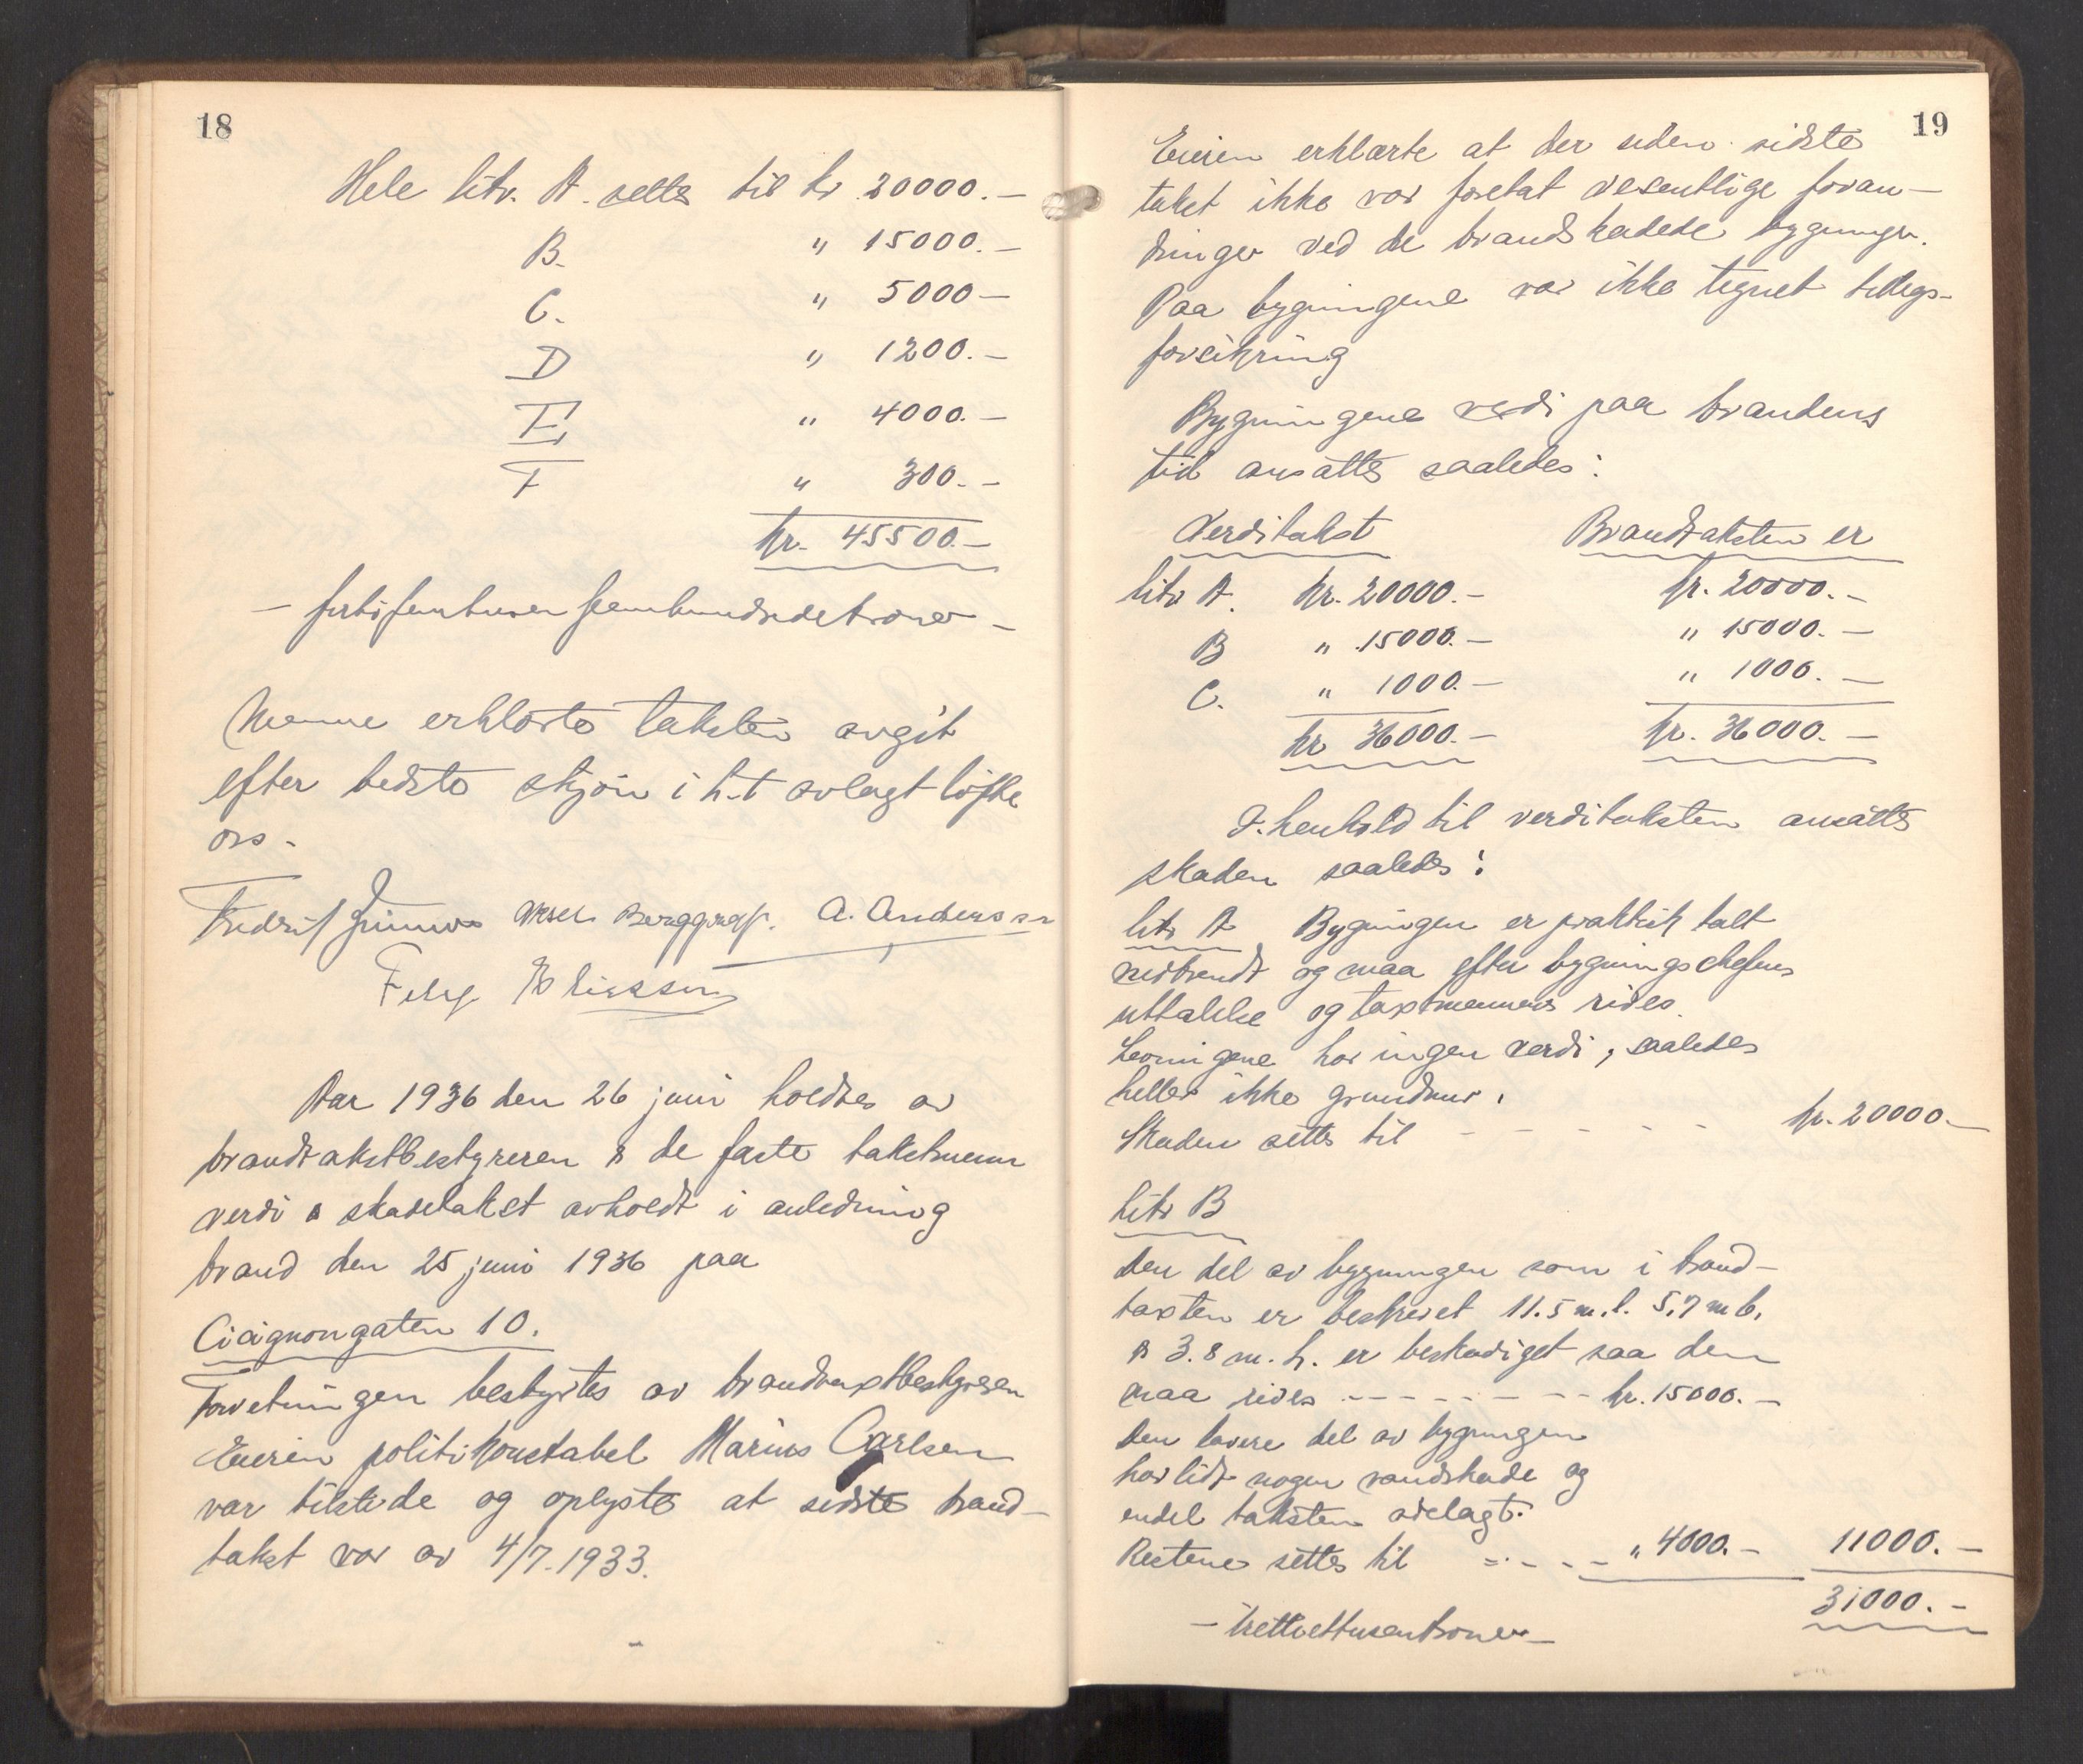 18
Hele litr. A. settes til kr. 20000.-
B. " 15000.-
C. " 5000-
D " 1200.-
E " 4000.-
F " 300.-
kr. 45500.-
- førtifemtusenfemhundredekroner -
Menne erklærte taksten avgit
efter bedste skjøn i h.t avlagt løfte
os.
Fredrik Aksel Berggraf. A. Anderssen
Eliassen
Aar 1936 den 26 juni holdtes av
brandtakstbestyreren & de faste takstmenn
verdi & skadetakst avholdt i anledning
brand den 25 juni 1936 paa
Cicignongaten 10.
Forretningen bestyrtes av brandtaxtbestyreren
Eieren politikonstabel Marius Carlsen
var tilstede og oplyste at sidste brand-
takst var av 4/7. 1933.
19
Eieren erklærte at der siden sidste
takst ikke var foretat vesentlige foran-
dringer ved de brandskadede bygninger.
Paa bygningene var ikke tegnet tillegs-
forsikring
Bygningene verdi paa brandens
tid ansattes saaledes:
Verditakst Brandtaksten er
litr A. kr. 20000.- kr. 20000.-
B " 15000.- " 15000.-
C. " 1000.- " 1000.-
kr 36000.- kr. 36000.-
I henhold til verditaksten ansattes
skaden saaledes:
litr A Bygningen er praktisk talt
nedbrendt og maa efter bygningschefens
uttalelse og taxtmennenes rives.
Levningene har ingen verdi, saaledes
heller ikke grundmur.
Skaden settes til - - - - - kr. 20000.-
Litr B
Den del av bygningen som i brand-
taxten er beskrevet 11.5 m.l. 5.7 m b.
& 3.8 m. h. er beskadiget saa den
maa rives - - - - - - - kr. 15000.-
Den lavere del av bygningen
har lidt nogen vandskade og
endel taksten ødelagt.
Restene settes til - - - - " 4000.- 11000.-
31000.-
- trettiettusenkroner -